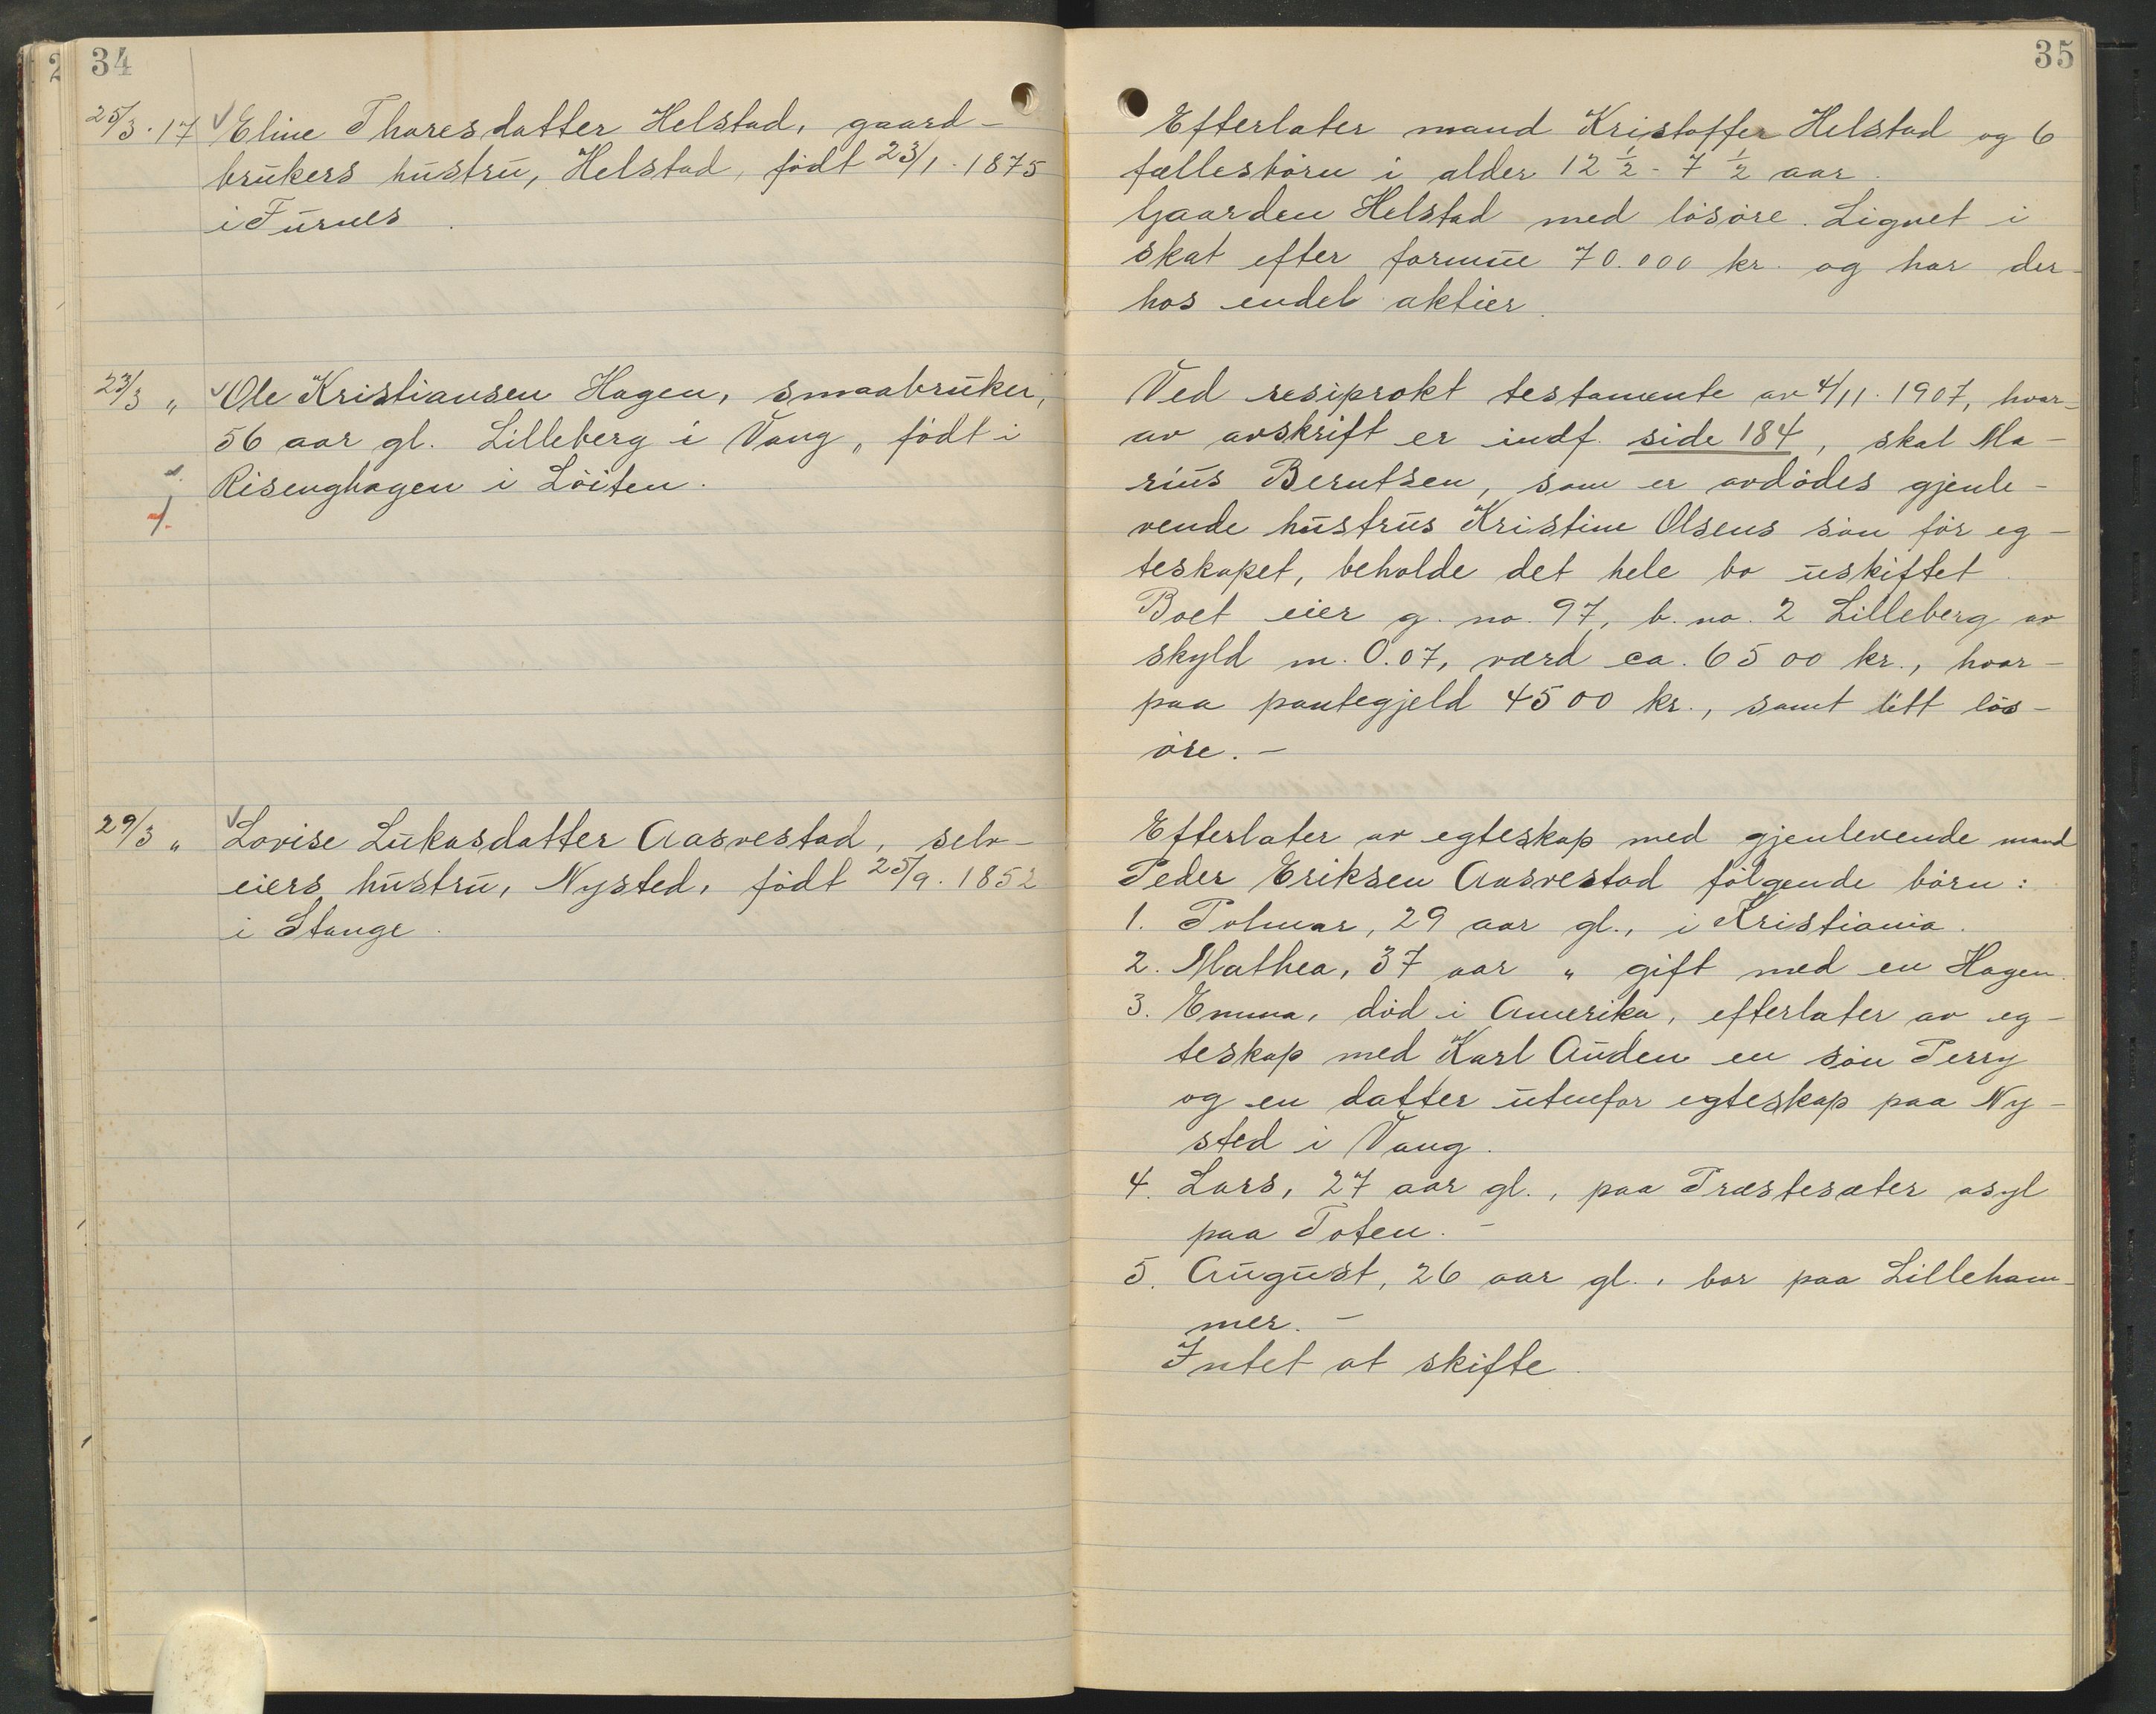 34
25/3. 17 Eline Thoresdatter Helstad, gaard-
brukers hustru, Helstad, født 23/1. 1875
i Furnes.
23/3 „ Ole Kristiansen Hagen, smaabruker,
56 aar gl. Lilleberg i Vang, født i
Risenghagen i Löiten.
29/3 „ Lovise Lukasdatter Aasvestad, selv-
eiers hustru, Nysted, født 25/9. 1852
i Stange.
35
Efterlater mand Kristoffer Helstad og 6
fællesbörn i alder 12 1/2 - 7 1/2 aar.
Gaarden Helstad med lösöre. Lignet i
skat efter formue 70.000 kr. og har der-
hos endel aktier.
Ved resiprokt testamente av 4/11. 1907, hvor-
av avskrift er indf. side 184, skal Ma-
rius Berntsen, som er avdödes gjenle-
vende hustrus Kristine Olsens sön för eg-
teskapet, beholde det hele bo uskiftet.
Boet eier g. no. 97, b. no. 2 Lilleberg av
skyld m. 0.07, værd ca. 6500 kr., hvor-
paa pantegjeld 4500 kr., samt litt lös-
öre. -
Efterlater av egteskap med gjenlevende mand
Peder Eriksen Aasvestad fölgende börn:
1. Polmar, 29 aar gl., i Kristiania.
2. Mathea, 37 aar „ gift med en Hagen.
3. Emma, död i Amerika, efterlater av eg-
teskap med Karl Auden en sön Perry
og en datter utenfor egteskap paa Ny-
sted i Vang.
4. Lars, 27 aar gl., paa Præstesæter asyl
paa Toten. -
5. August, 26 aar gl., bor paa Lilleham-
mer. -
Intet at skifte.